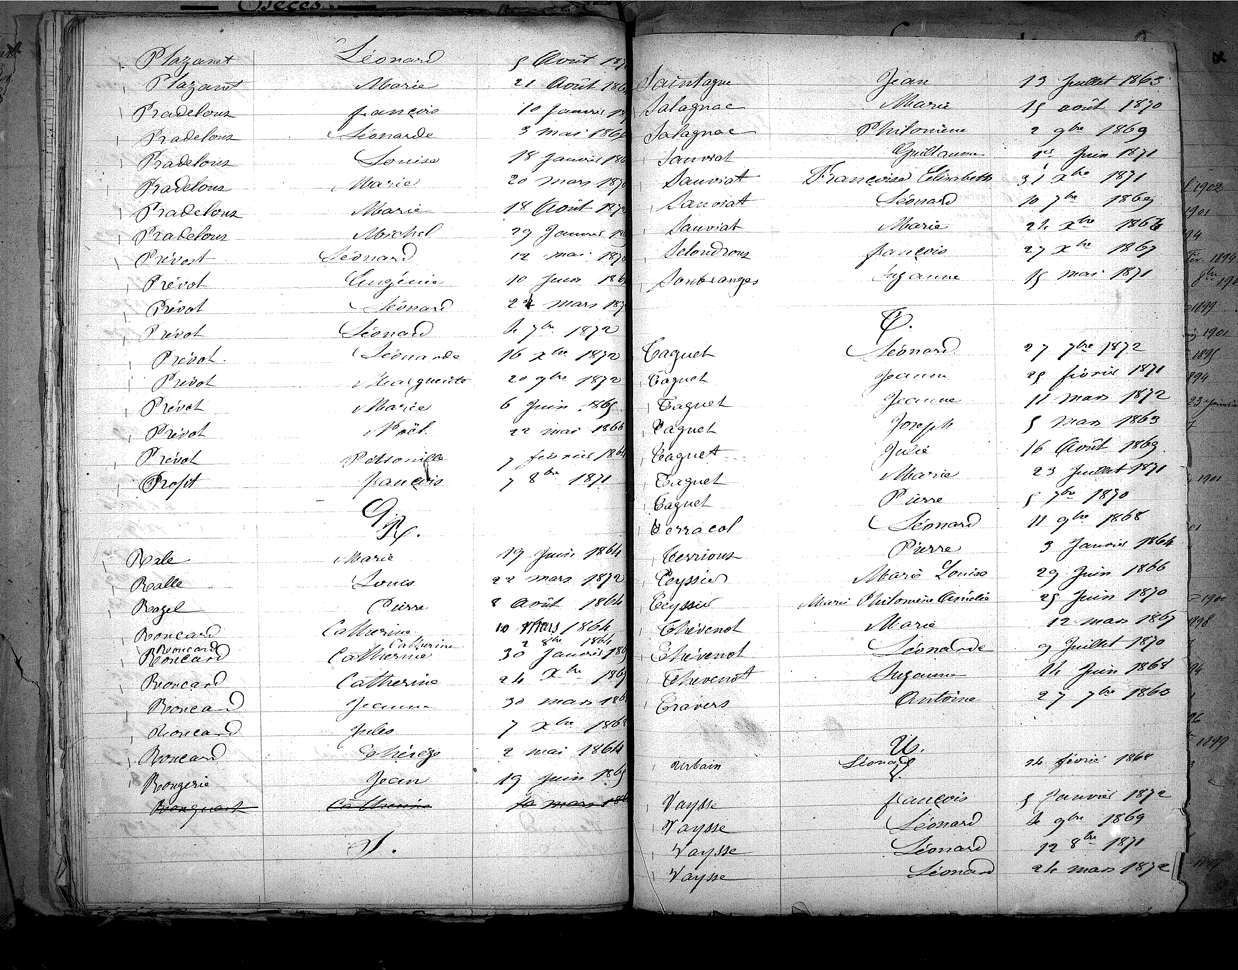 Plazanet Léonard 5 Août 187
Plazanet Marie 21 Août 186
Pradeloux françois 10 Janvier
Pradeloux Léonarde 3 mai 186
Pradeloux Louise 18 Janvier 18
Pradeloux Marie 20 mars 187
Pradeloux Marie 18 Août 187
Pradeloux Michel 29 Janvier
Prévost Léonard 12 mai 187
Prévot Eugénie 10 Juin 186
Prévot Léonard 22 mars 187
Prévot Léonard 4 7bre 1872
Prévot Léonarde 16 xbre 1872
Prévot Marguerite 20 9bre 1872
Prévot Marie 6 Juin 1865
Prévot Noël 22 mai 1866
Prévot Pétronille 7 février 186
Profit françois 7 8bre 1871
R.
Rale Marie 19 Juin 1864
Ralle Louis 22 mars 1872
Razel Pierre 8 Août 1864
Roncard Catherine 10 Mars 1864
Romcard Catherine 2 8bre 1864
Roncard Catherine 30 Janvier 186
Roncard Catherine 24 Xbre 186
Roncard Jeanne 30 mars 186
Roncard Jules 7 xbre 186
Roncard Thérèze 2 mai 1864
Rongerie Jean 19 Juin 186
Catherine
S.
Saintagne Jean 13 Juillet 1863
Salagnac Marie 15 août 1870
Salagnac Philomène 2 9bre 1869
Sauviat Guillaume 1er Juin 1871
Sauviat Françoise Elisabeth 31 Xbre 1871
Sauviat Léonard 10 7bre 1869
Sauviat Marie 24 Xbre 1864
françois 27 Xbre 1867
Soubranges Suzanne 15 mai 1871
T.
Taguet Léonard 27 7bre 1872
Taguet Jeanne 25 février 1871
Taguet Jeanne 11 mars 1872
Taguet Joseph 5 mars 1863
Taguet Julie 16 Août 1869
Taguet Marie 23 Juillet 1871
Taguet Pierre 5 7bre 1870
Terracol Léonard 11 9bre 1868
Terrioux Pierre 3 Janvier 1864
Teyssier Marie Louise 29 Juin 1866
Teyssier Marie Philomène Amélie 25 Juin 1870
Thévenot Marie 12 mai 1867
Thévenot Léonarde 9 Juillet 1870
Thévenot Suzanne 14 Juin 1868
Travers Antoine 27 7bre 1860
U.
Urbain Léonard 24 février 1868
V
Vaysse françois 5 Janvier 1872
Vaysse Léonard 4 9bre 1869
Vaysse Léonard 12 8bre 1871
Vaysse Léonard 24 mars 1872